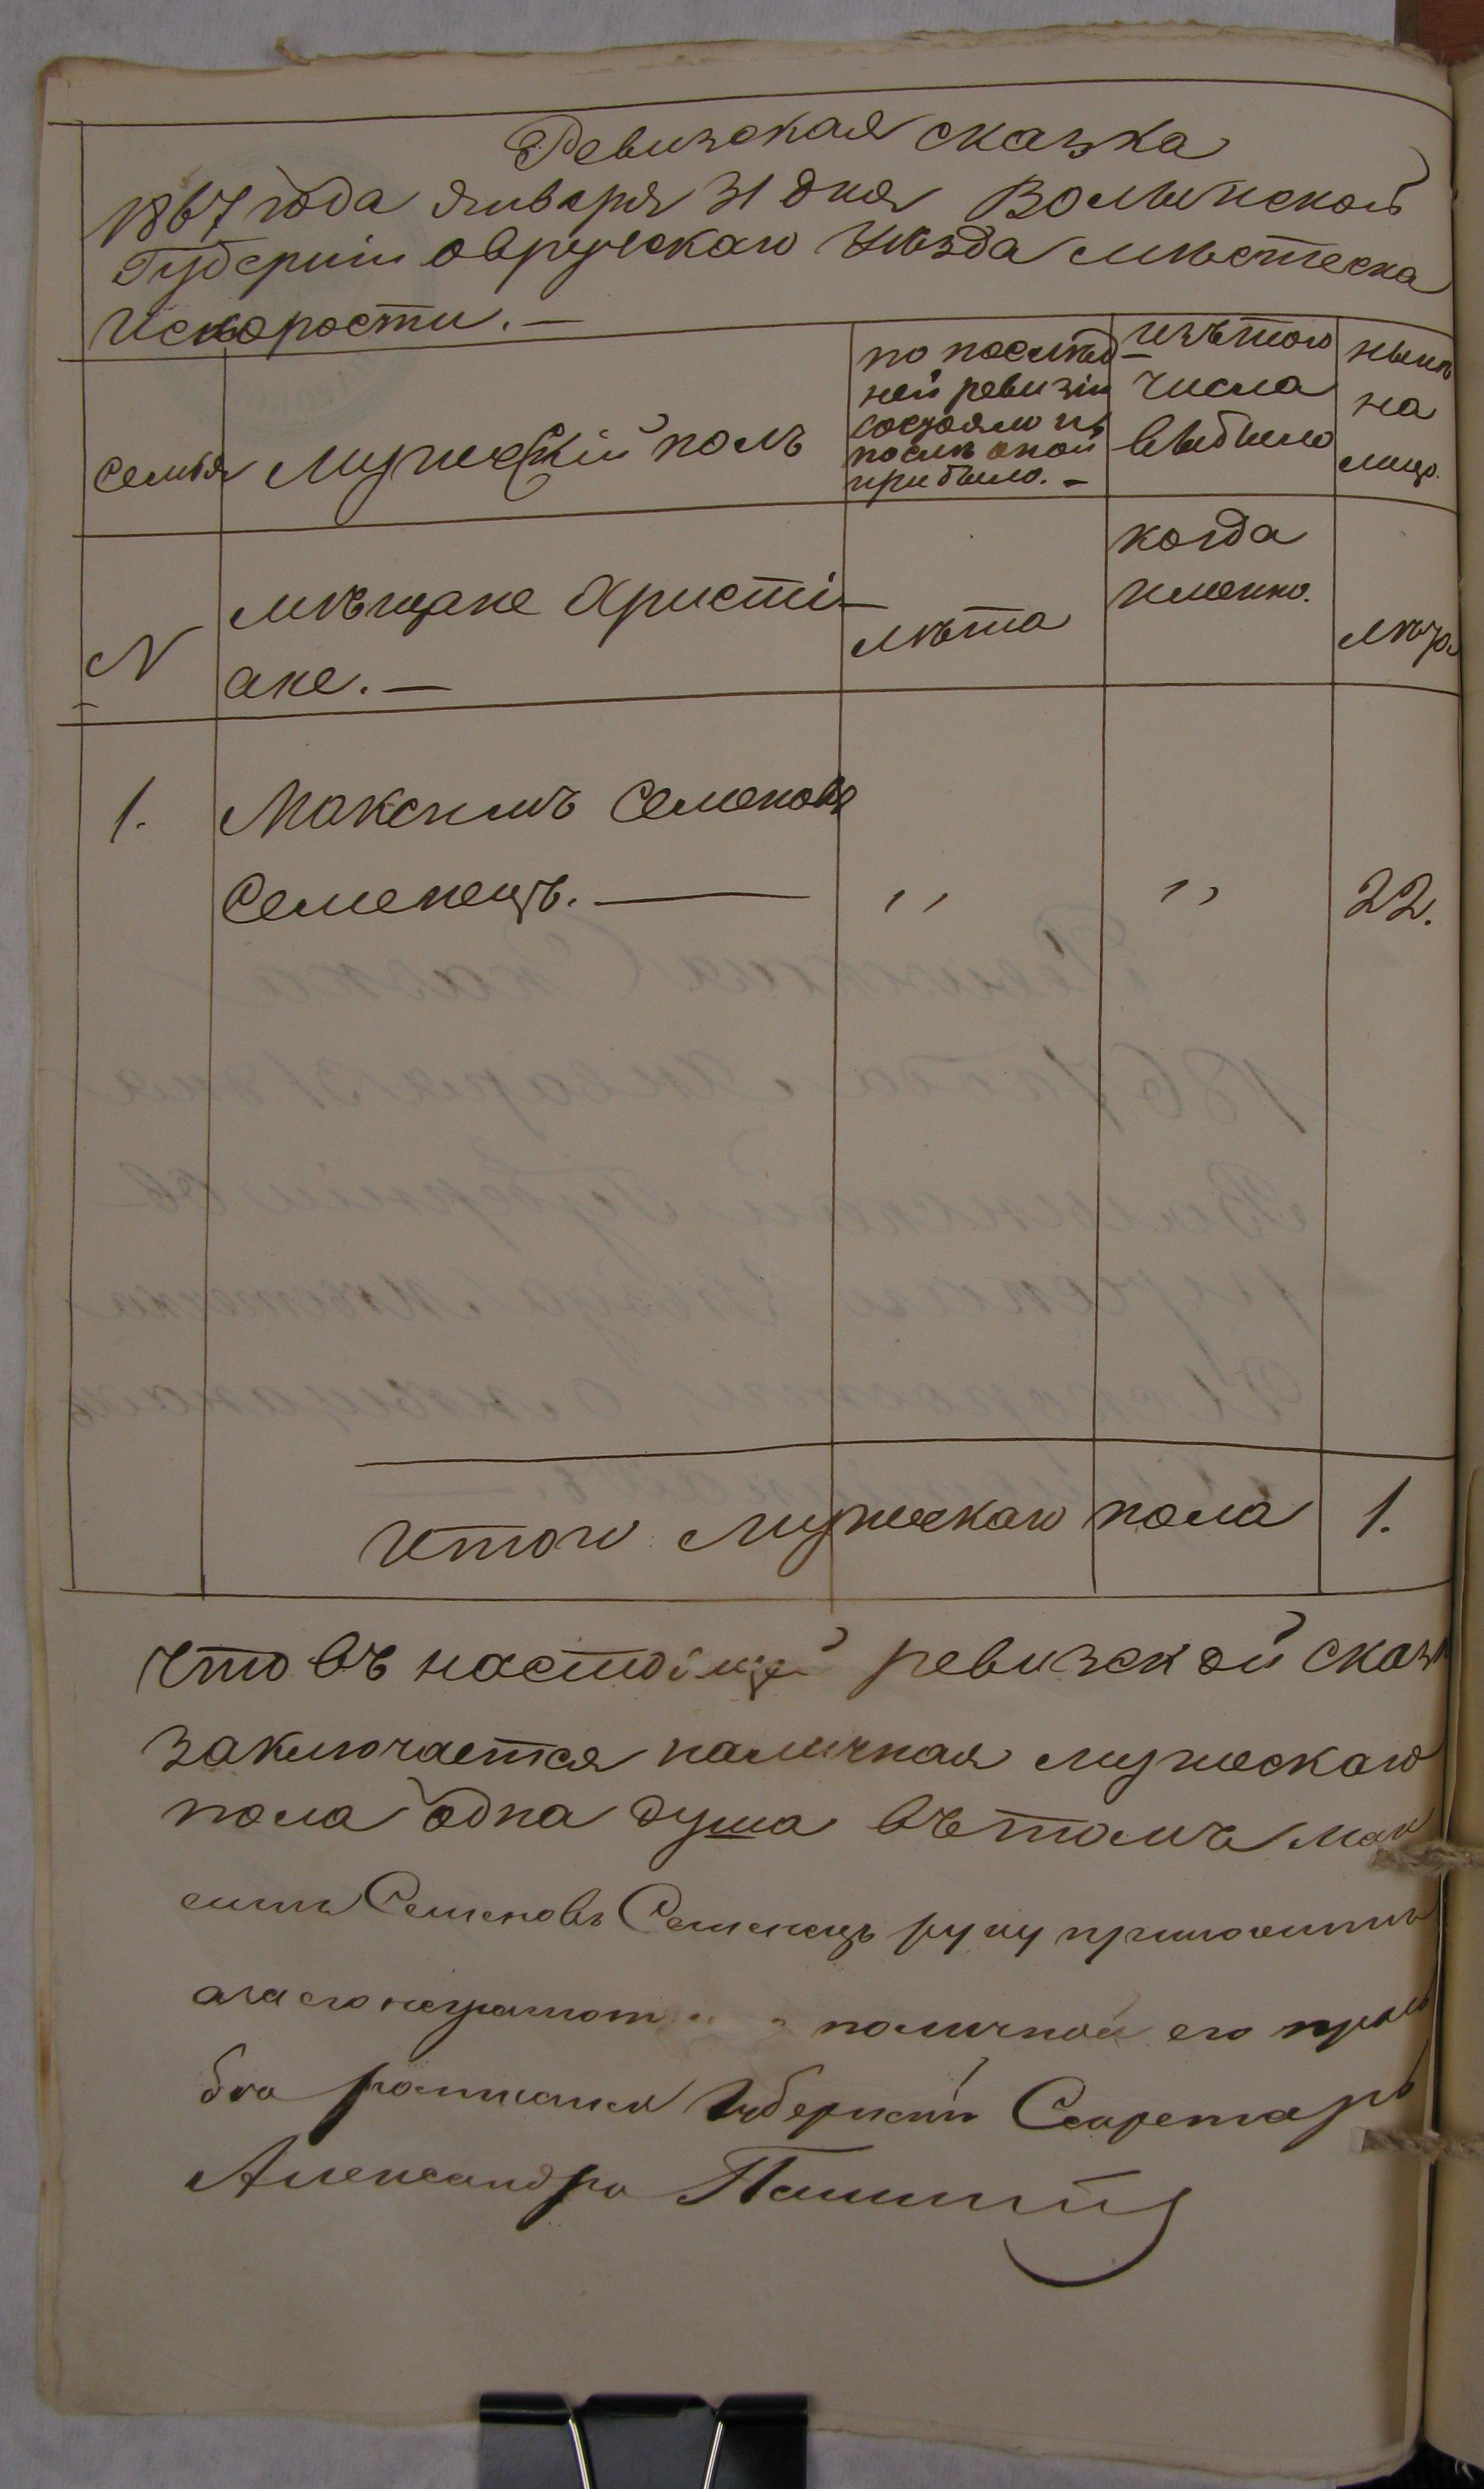 Ревизская сказка
1867 года Января 31 дня Волынской
Губерніи Овручскаго Уѣзда мѣстечка
Искорости. —
семья
мужескій полъ
по послѣд
ней ревизіи
состояло и
послѣ оной
прибыло. –
изъ того
числа
выбыло
нынѣ
на
лицо.
N
мѣщане Христі–
ане. —
лѣта
когда
именно.
лѣта
1. Максимъ Семеновъ
Семенецъ. — „ „ 22.
Итого мужескаго пола 1.
Что въ настоящей ревизской сказк
заключается наличная мужескаго
пола одна душа въ томъ Мак
симъ Семеновъ Семенецъ руку приложилъ
а за его неграмот личной его
бѣ Губернскій Секретарь
Александръ